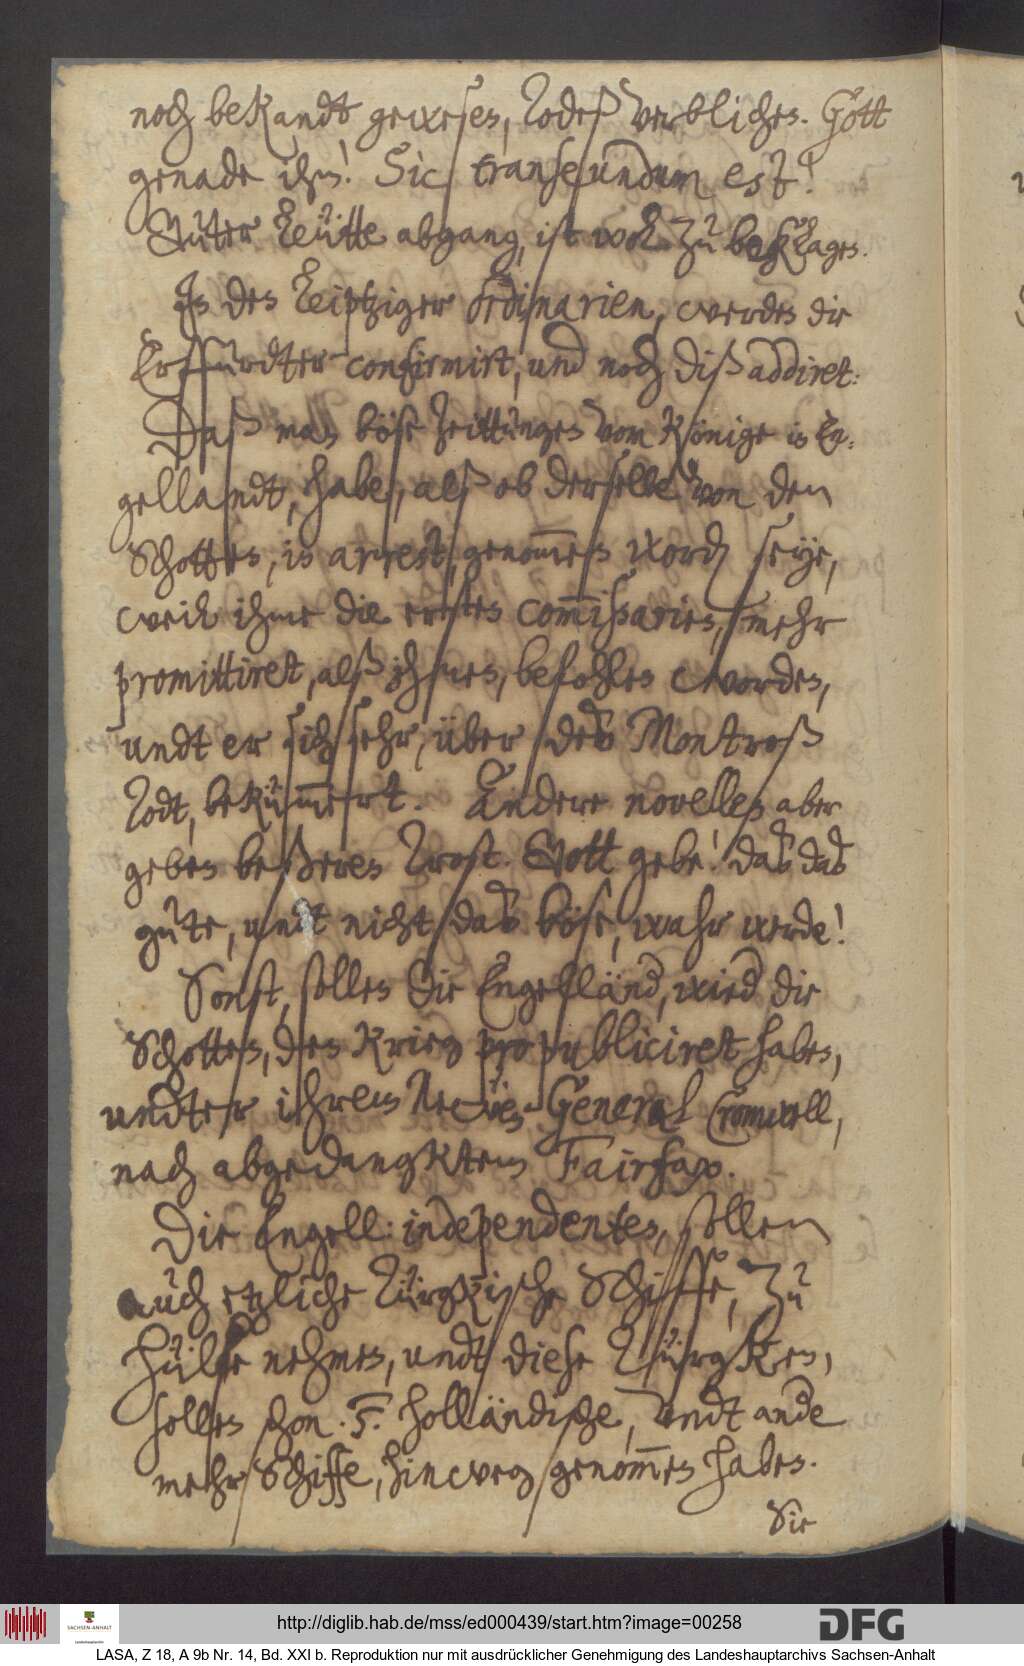 noch bekandt gewesen, Todeß verblichen. Gott
genade ihm! Sic transeundum est!
Guter Leütte abgang, ist wol zu beklagen.
In den Leiptziger Ordinarien, werden die
Erffurdter confirmirt, und noch diß addiret:
Daß man böse Zeittungen vom Könige in En-
gellandt, habe, alß ob derselbe von den
Schotten, in arrest, genommen word seye,
weil ihme die ersten commißarien, mehr
promittiret, alß ihnen, befohlen worden,
undt er sich sehr, über des Montroß
Todt, bekümmert. Andere novellen aber
geben beßeren Trost. Gott gebe! das das
gute, undt nicht das böse, wahr werde!
Sonst, sollen die Engelländ, wied die
Schotten, den Krieg publiciret haben,
undter ihrem Neẅen General Cromwell,
nach abgedangktem Fairfax.
Die Engell: independenten, sollen
auch etzliche Türgkische Schiffe, zu
hülfe nehmen, undt diese Türgken,
sollen schon .F. holländische, undt ande
mehr Schiffe, hinweg genommen haben.
Sie
http://diglib.hab.de/mss/ed000439/start.htm?image=00258
SACHSEN-ANHALT
DFG
LASA, Z 18, A 9b Nr. 14, Bd. XXI b. Reproduktion nur mit ausdrücklicher Genehmigung des Landeshauptarchivs Sachsen-Anhalt